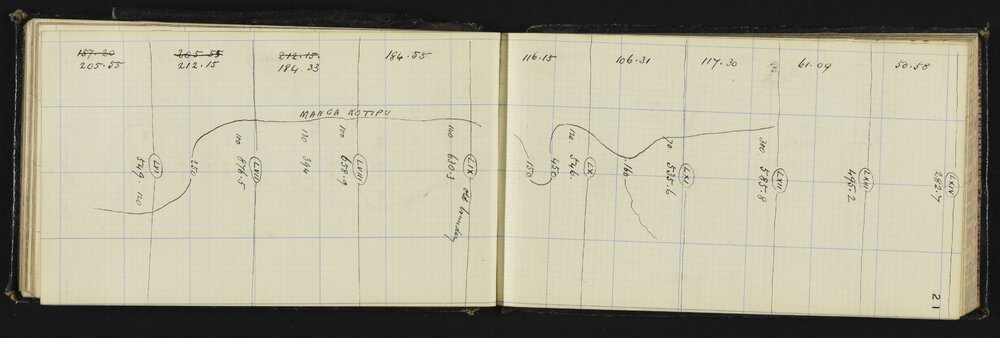 157.20 205.55 212.15. 184.55 116.15 106.31 117.30 61.09 50.58
205.55 212.15 184.33
MANGA KOTIPU
LVI
549. 120
250
LVII
110 876.5
130 394
LVIII
110 658.9
LIX
120 630.3 old boundary
150
450
LX
120 546.
166
LXI
70 535.6
LXII
300 585.8
LXIII
495.2
LXIV
282.7
21